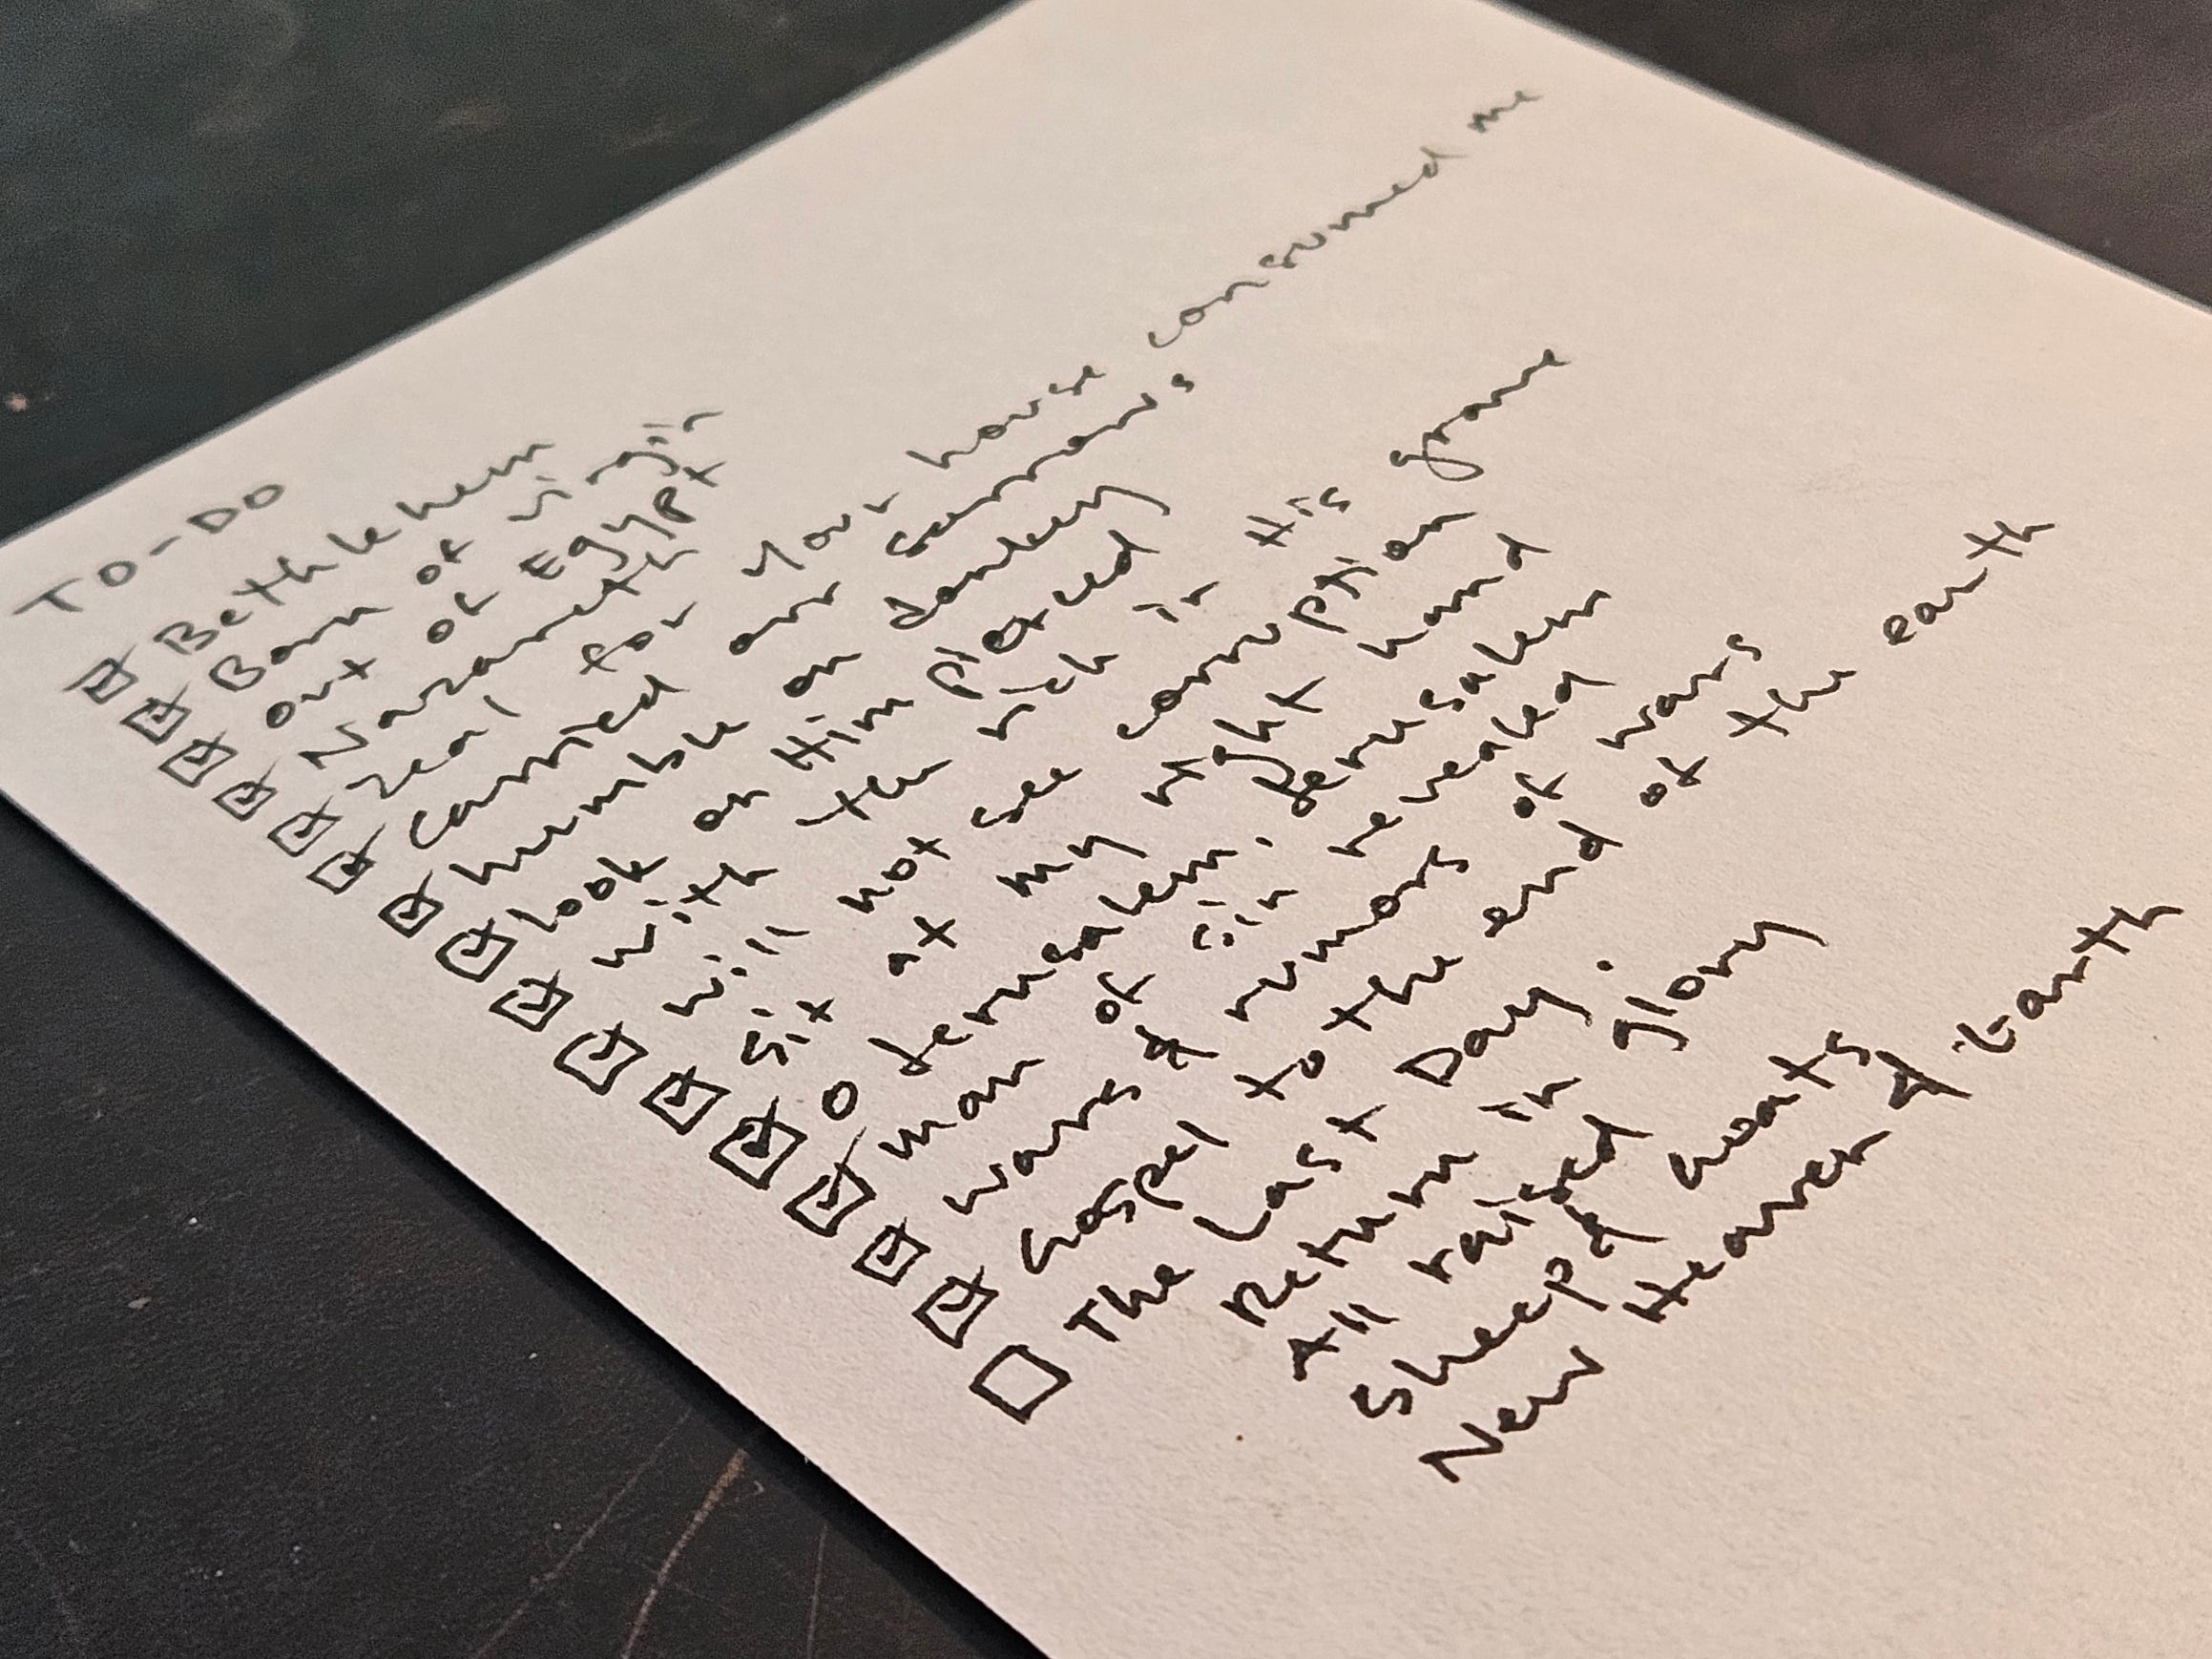 TO-DO
☑ Bethlehem
☑ Born of virgin
☑ out of Egypt
☑ Nazareth
☑ zeal for your house consumed me
☑ carried our sorrows
☑ humble on donkey
☑ look on Him pierced
☑ with the rich in His grave
☑ will not see corruption
☑ sit at my right hand
☑ O Jerusalem, Jerusalem
☑ man of sin revealed
☑ wars & rumors of wars
☑ Gospel to the end of the earth
☐ The Last Day:
Return in glory
All raised
Sheep & Goats
New Heaven & Earth